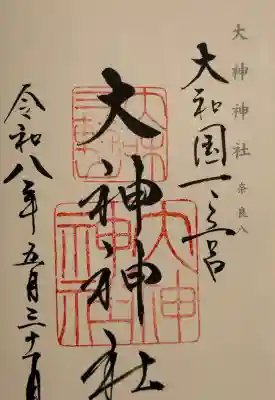 大神神社 奈良八
大和国一之宮
大神神社
令和八年五月三十一日
大神
神社